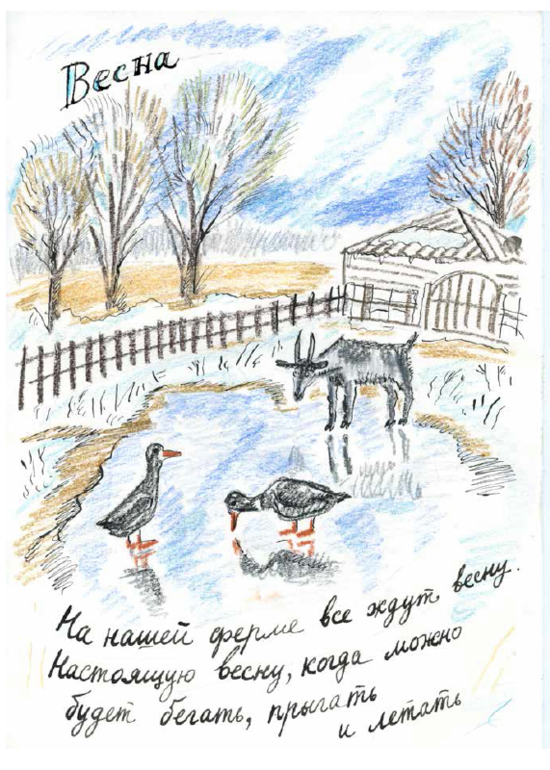 Весна
На нашей ферме все ждут весну.
Настоящую весну, когда можно
будет бегать, прыгать
и летать